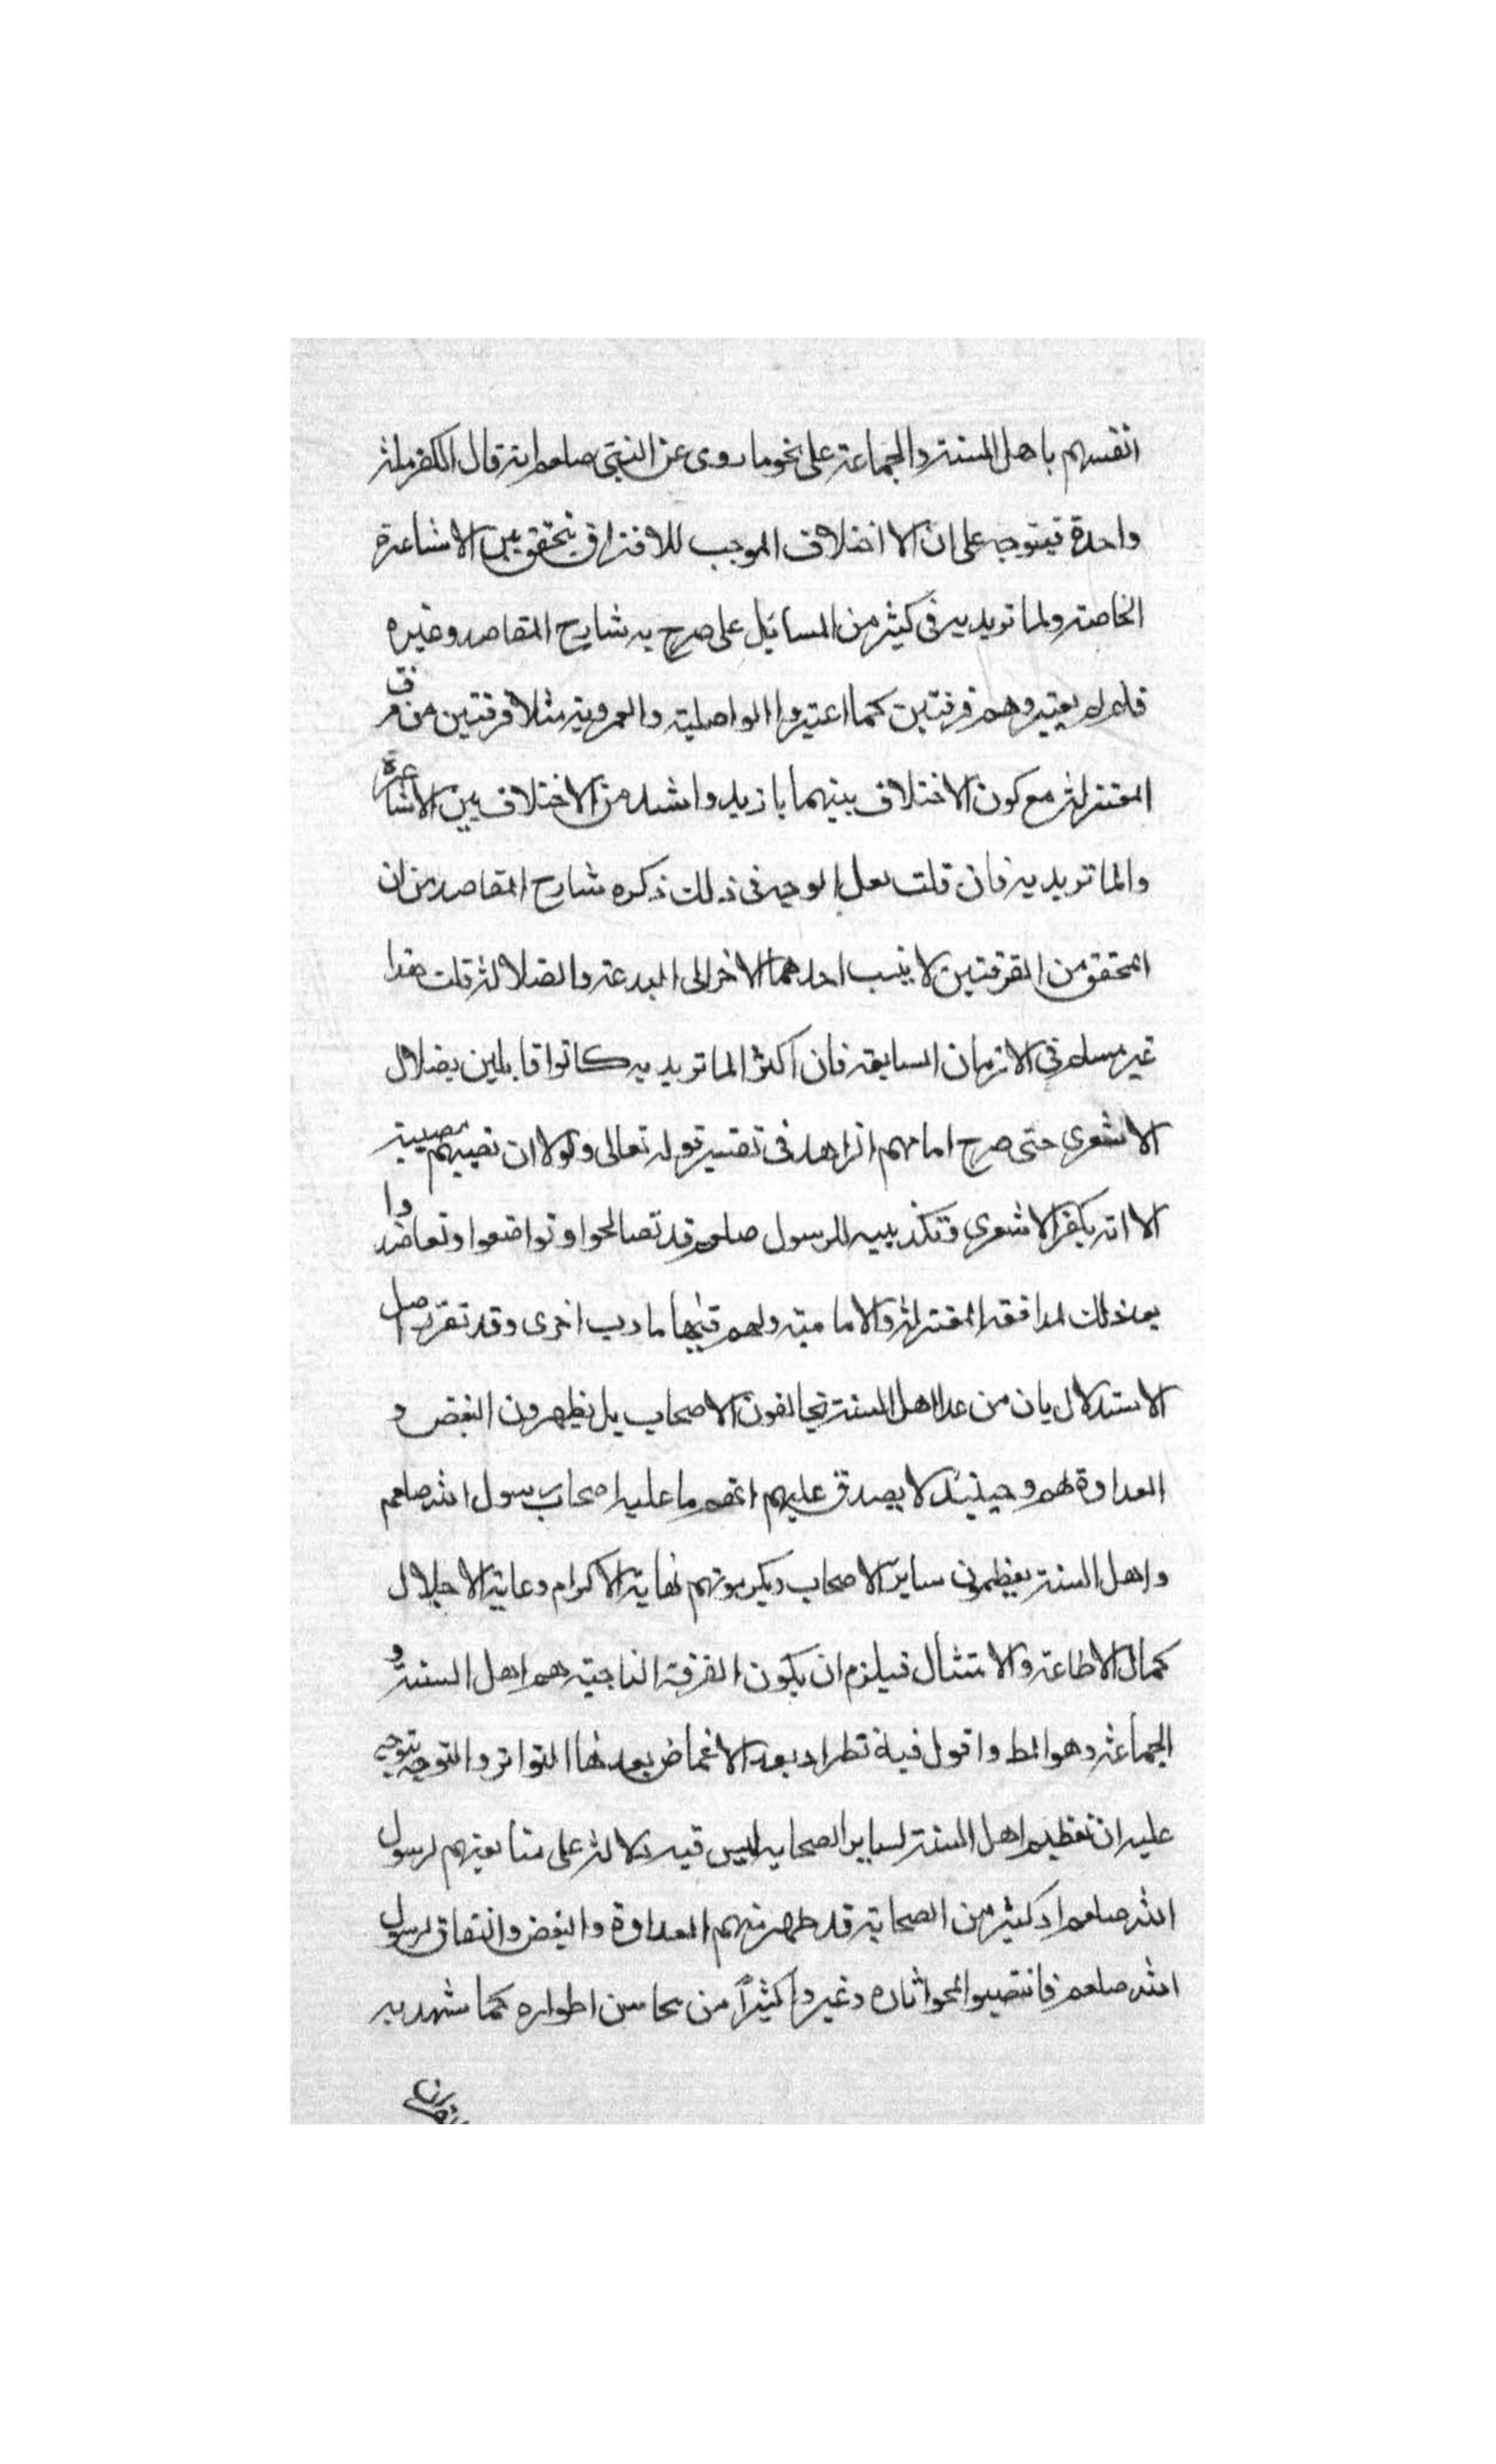 انفسهم باهل السنة والجماعة على نحو ما روى عن النبى صلعم انه قال الكفر ملة
واحدة فيتوجه على ان الا اختلاف الموجب للافتراق يتحقق بين الاشاعرة
الخاصة ولما تويديه فى كثير من المسائل على صرح به شارح المقاصد وغيره
فلم لم يعتبروهم فرقتين كما اعتبروا الواصلية والعمروية مثلا فرقتين من فرق
المعتزلة مع كون الاختلاف بينهما بازيد واشد من الاختلاف بين الاشاعرة
والماتريديه فان قلت لعل الوجه فى ذلك ذكره شارح المقاصد من ان
المحقق من الفرقتين لا ينسب احدهما الاخر الى البدعة والضلالة قلت هذا
غير مسلم فى الازمان السابقة فان اكثر الماتريديه كانوا قايلين بضلال
الاشعرى حتى صرح امامهم الزاهد فى تفسير قوله تعالى ولولا ان تصيبهم مصيبة
الا انه يكفر الاشعرى وتكذيبه للرسول صلعم قد تصالحوا وتواضعوا وتعاضدوا
بعد ذلك لمدافعة المعتزلة والامامية ولهم فيها مارب اخرى وقد تقرر اصل
الاستدلال بان من عدا اهل السنة يخالفون الاصحاب بل يظهرون البغض و
العداوة لهم وحينئذ لا يصدق عليهم انهم ما عليه اصحاب رسول الله صلعم
واهل السنة يعظمون ساير الاصحاب ويكرمونهم نهاية الاكرام وغاية الاجلال
كمال الاطاعة والامتثال فيلزم ان يكون الفرقة الناجية هم اهل السنة و
الجماعة وهو المط واقول فيه نظر اذ بعد الاغماض بعد هذا التواتر والتوجه يتوجه
عليه ان تعظيم اهل السنة لساير الصحابه ليس فيه دلالة على متابعتهم لرسول
الله صلعم اذ كثير من الصحابة قد ظهر منهم العداوة والبغض والنفاق لرسول
الله صلعم فانتصبوا لمحو اثاره وغيروا كثيرًا من محاسن اطواره كما شهد به